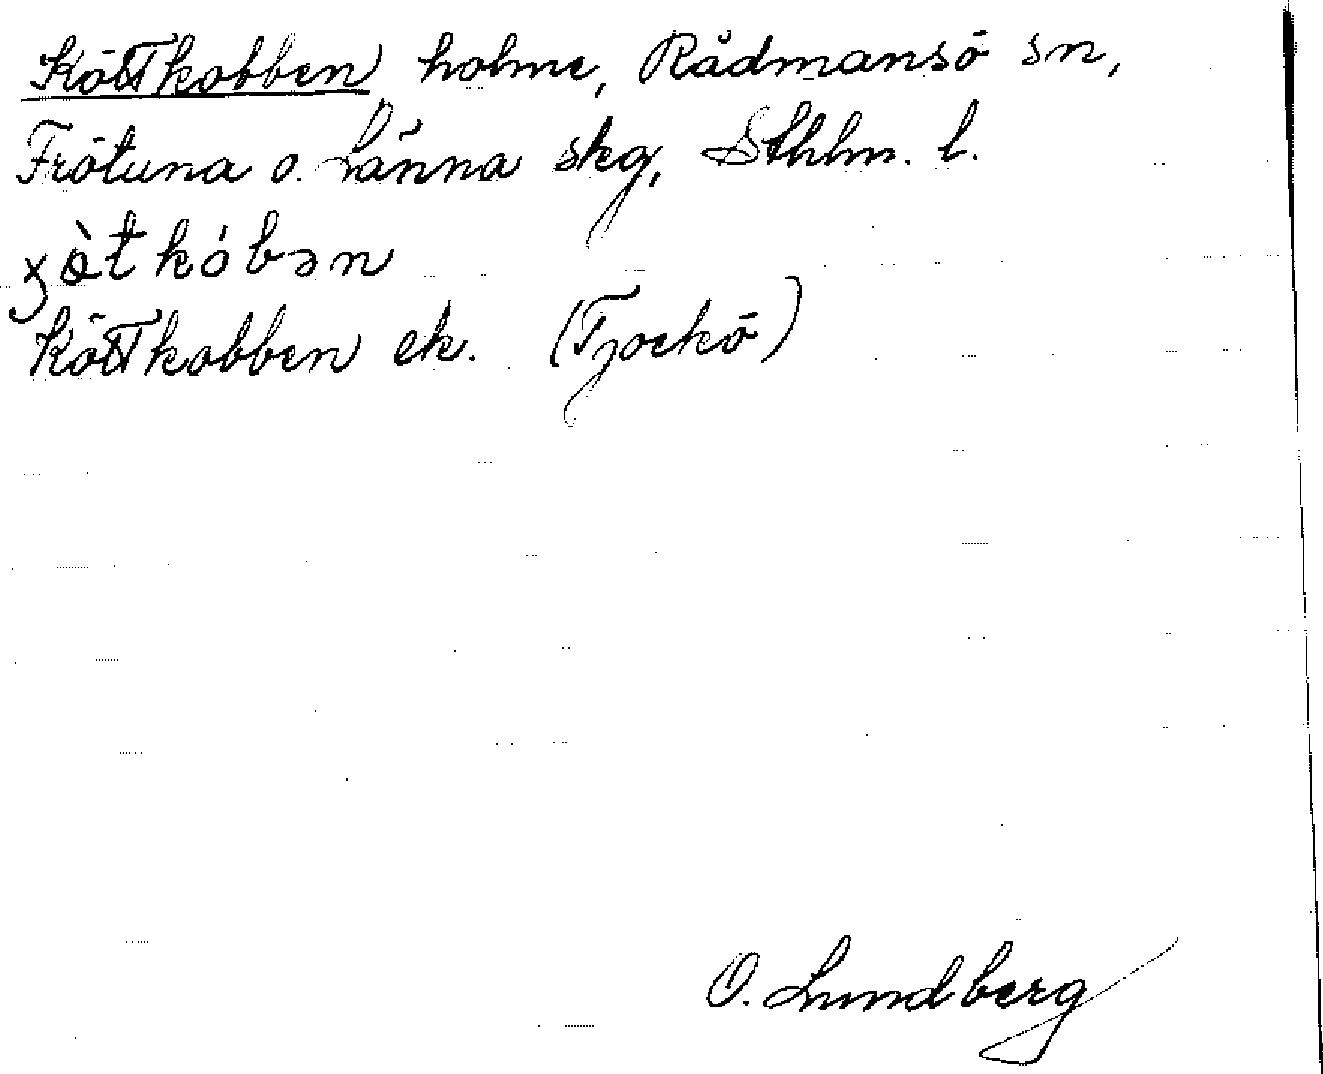 Köttkobben, holme, Rådmansö sn,
Frötuna o. Länna skg, Sthlm. l.
kóbən
Köttkobben ek. (Tjockö)
O. Lundberg